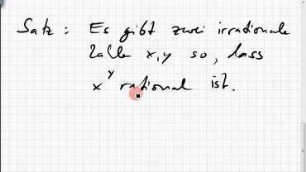 Satz: Es gibt zwei irrationale
Zahlen x, y so, dass
x^y rational ist.